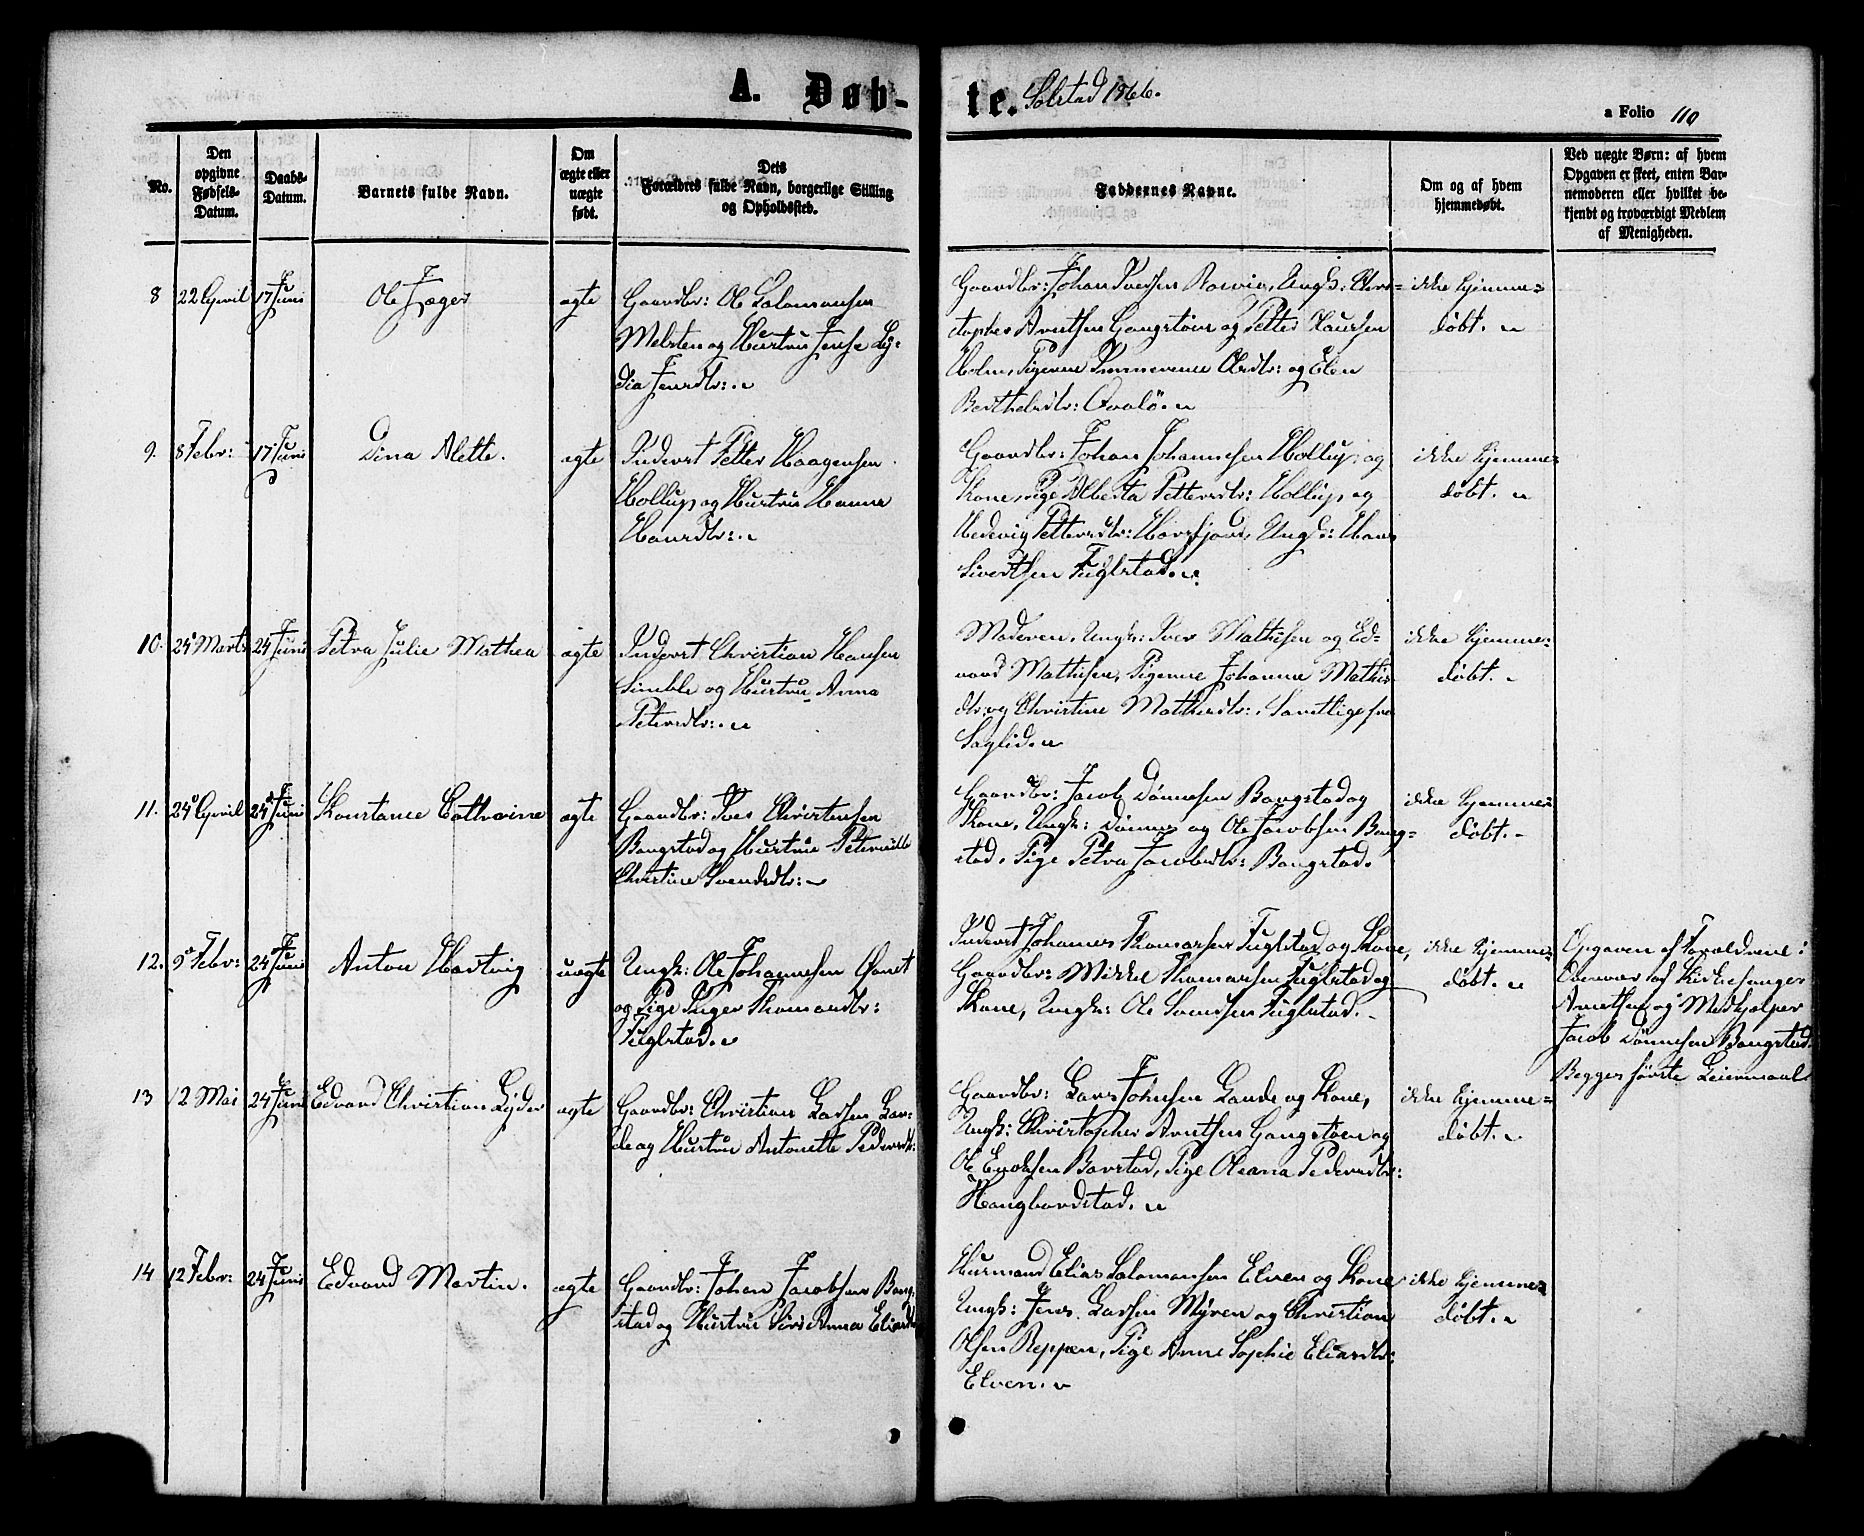 A. Døb-
te. Solstad 1866.
a Folio 110
No.
Den opgivne Fødsels-Datum.
Daabs-Datum.
Barnets fulde Navn.
Om ægte eller uægte født.
Dets Forældres fulde Navn, borgerlige Stilling og Opholdssted.
Faddernes Navne.
Om og af hvem hjemmedøbt.
Ved uægte Børn: af hvem Opgaven er skeet, enten Barnemoderen eller hvilket bekjendt og troværdigt Medlem af Menigheden.
8 22 April 17 Juni Ole Jæger ægte Gaardbr: Ole Salamonsen
Melsten og Hustru Jense Ly-
dia Jensdtr:
Gaardbr: Johan Iversen, Ungk: Chris-
topher Arntsen Gangstøen og Petter Klausen
Holm, Pigerne Olsdtr: og Elen
Berthelsdtr:
ikke hjemme=
døbt.
9. 8 Febr: 17 Juni Dina Alette. ægte Inderst Petter Haagensen
Hollup og Hustru Hanna
Hansdtr:
Gaardbr: Johan Johannesen Hollup og
Kone, Pige Alberta Pettersdtr: Hollup, og
Hedevig Pettersdtr: Horsfjord, Ungk: Hans
Sivertsen Fuglstad.
ikke hjemme=
døbt.
10. 24 Marts 24 Juni Petra Julie Mathea ægte Inderst Christian Hansen
Simble og Hustru Anna
Petersdtr:
Moderen, Ungk: Iver Mathisen og Ed-
vard Mathisen, Pigerne Johanna Mathis-
dtr: og Christine Mathisdtr:, Samtlige fra
Saglid.
ikke hjemme=
døbt.
11. 24 April 24 Juni Konstance Cathrine ægte Gaardbr: Iver Christensen
Bangstad og Hustru Peternille
Christine Svendsdtr:
Gaardbr: Jacob Dønnesen Bangstad og
Kone, Ungk: Dønnes og Ole Jacobsen Bang=
stad, Pige Petra Jacobsdtr: Bangstad.
ikke hjemme=
døbt.
12. 9 Febr: 24 Juni Anton Hartvig uægte Ungk: Ole Johannesen
og Pige Inger Thomasdtr:
Fuglstad.
Inderst Johannes Thomassen Fuglstad og Kone,
Gaardbr: Mikkel Thomassen Fuglstad og
Kone, Ungk: Ole Svendsen Fuglstad.
ikke hjemme=
døbt.
Opgaven af Forældrene:
af Kirkesanger
Arntsen og Medhjelper
Jacob Dønnesen Bangstad.
Begges første Leiermaal
13 12 Mai 24 Juni Edvard Christian Lyder ægte Gaardbr: Christian Larsen Lan-
de og Hustru Antonette Pedersdtr:
Gaardbr: Lars Johnsen Lande og Kone,
Ungk: Christopher Arntsen Gangstøen og
Ole Enoksen Barstad, Pige Oleana Pedersdtr:
Hongbardstad.
ikke hjemme=
døbt.
14 12 Febr: 24 Juni Edvard Martin. ægte Gaardbr: Johan Jacobsen Bang-
stad og Hustru Siri Anna Eliasdtr
Huusmand Elias Salamonsen Elven og Kone
Ungk: Jens Larsen Myren og Christian
Olsen Reppen, Pige Anne Sophie Eliasdtr:
Elven.
ikke hjemme=
døbt.